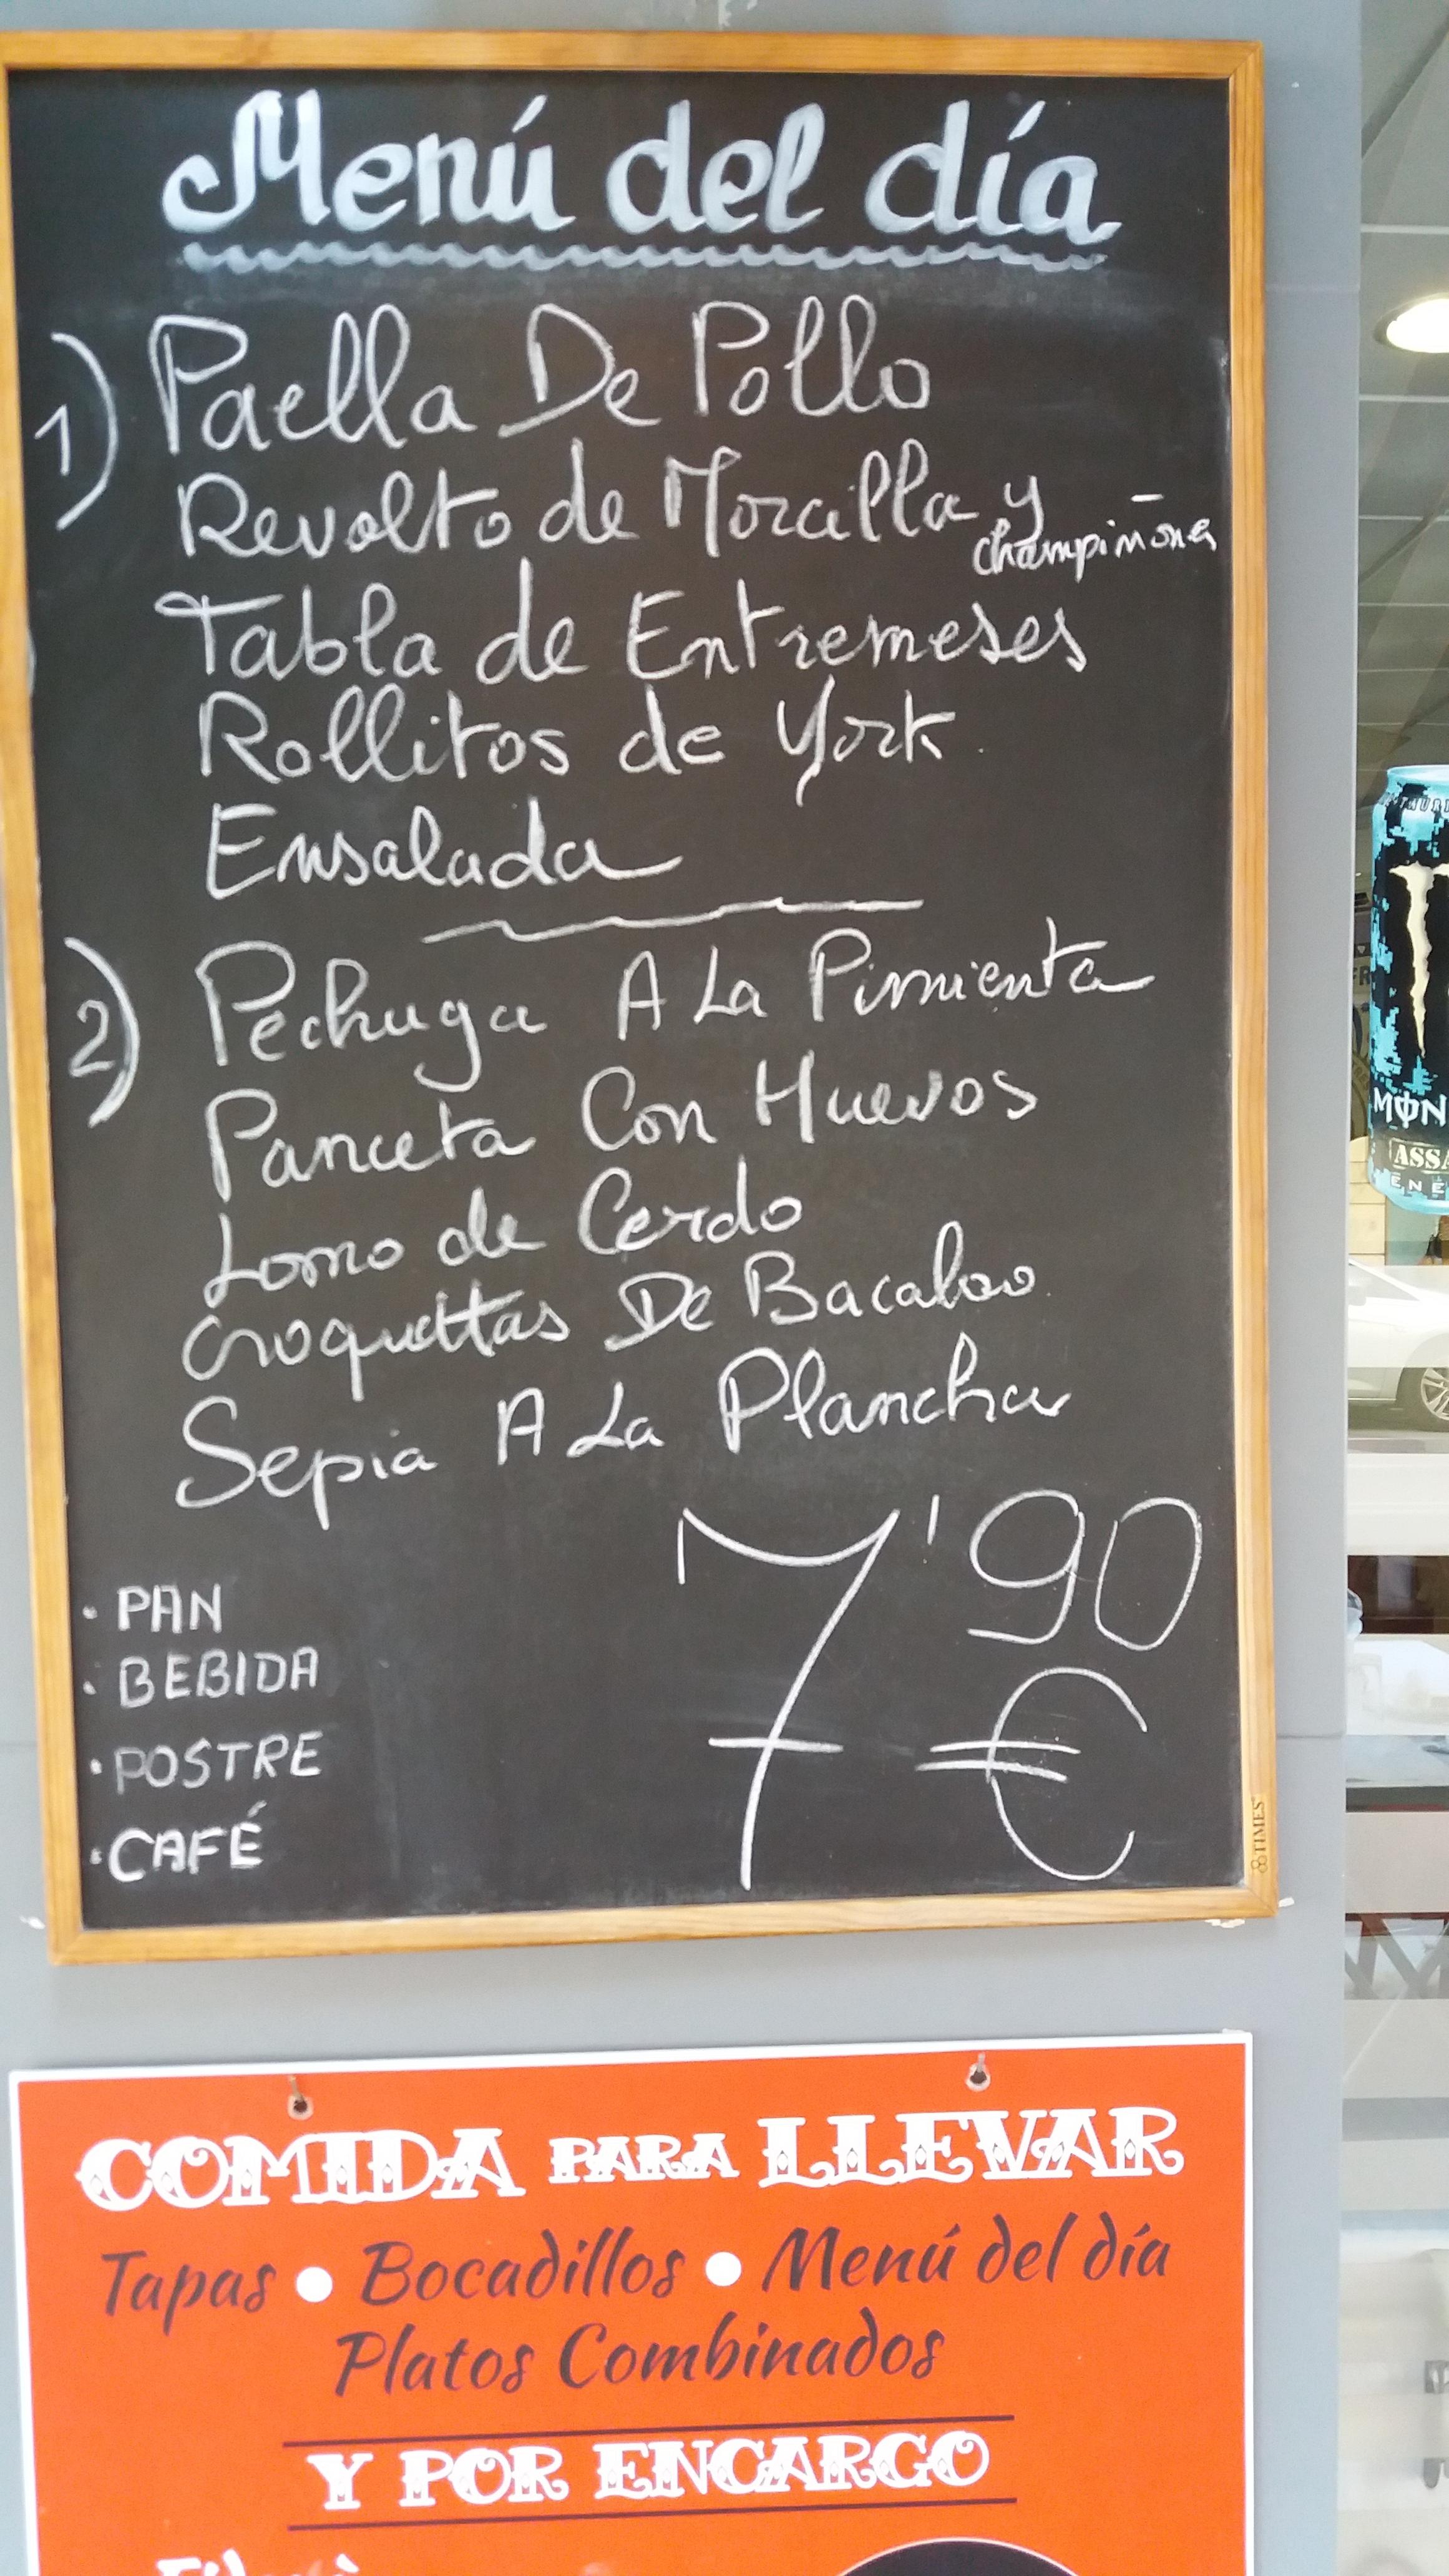 Menú del día
1) Paella De Pollo
Revolto de Morcilla y
champiñones
Tabla de Entremeses
Rollitos de York
Ensalada
2) Pechuga A La Pimienta
Panceta Con Huevos
Lomo de Cerdo
Croquettas De Bacalao
Sepia A La Plancha
7'90
€
· PAN
· BEBIDA
· POSTRE
· CAFÉ
TIMES
COMIDA PARA LLEVAR
Tapas • Bocadillos • Menú del día
Platos Combinados
Y POR ENCARGO